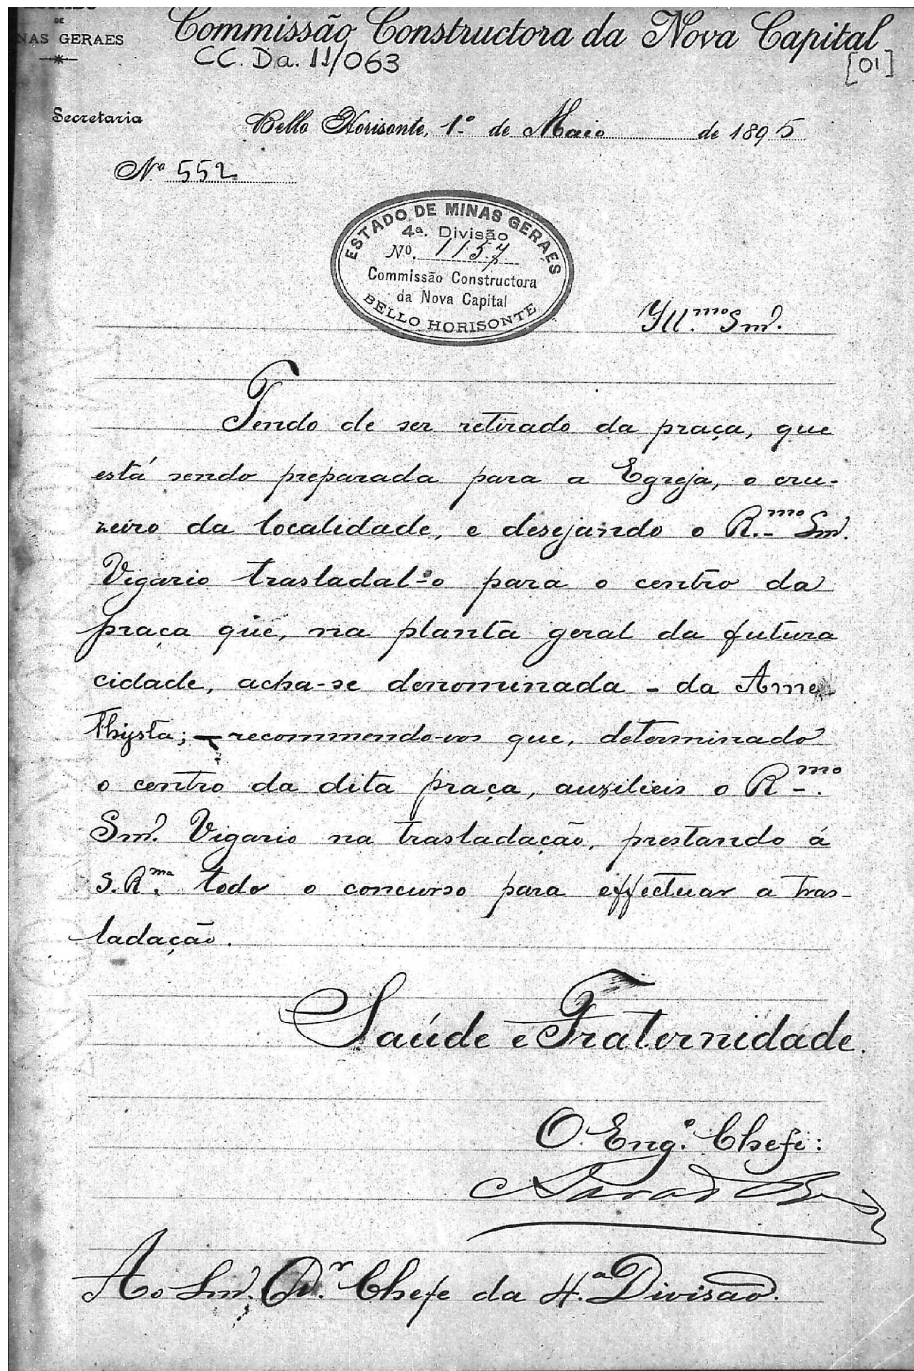 DE
NAS GERAES
Commissão Constructora da Nova Capital
CC. Da. 11/063
[01]
Secretaria
Bello Horisonte, 1º de Maio de 1895
Nº 552
ESTADO DE MINAS GERAES
4ª. Divisão
Nº. 1157
Commissão Constructora
da Nova Capital
BELLO HORISONTE
Ill.mo Snr.
Tendo de ser retirado da praça, que
está sendo preparada para a Egreja, o cru-
zeiro da localidade, e desejando o R.mo Snr.
Vigario trasladal-o para o centro da
praça que, na planta geral da futura
cidade, acha-se denominada - da Ame
thysta; - recommendo-vos que, determinado
o centro da dita praça, auxilieis o R.mo
Snr. Vigario na trasladação, prestando á
S. R.ma todo o concurso para effectuar a tras-
ladação.
Saúde e Fraternidade.
O Engº. Chefe:
Ao Snr. Dr. Chefe da 4.ª Divisão.